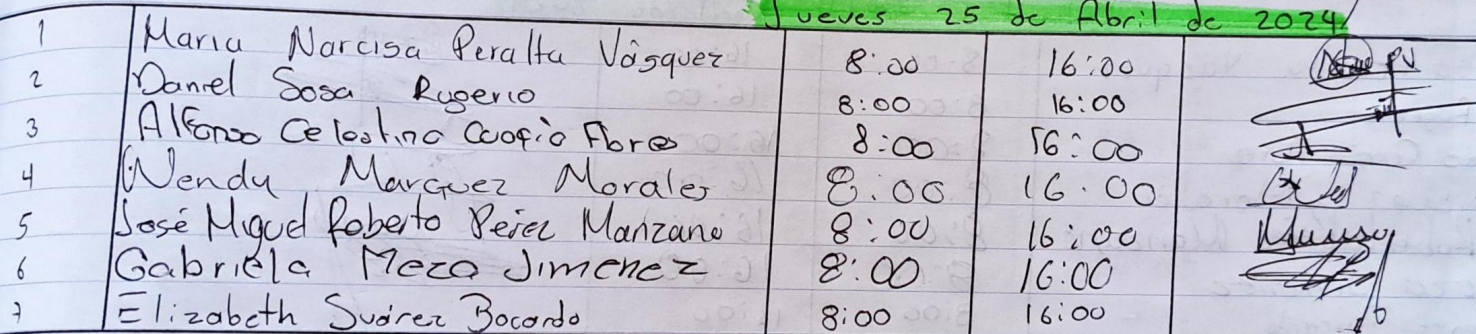 Jueves 25 de Abril de 2024
1 Maria Narcisa Peralta Vásquez 8:00 16:00
2 Daniel Sosa Rugerio 8:00 16:00
3 Alfonso Celestino Flores 8:00 16:00
4 Wendy Marquez Morales 8:00 16:00
5 José Miguel Roberto Perez Manzano 8:00 16:00
6 Gabriela Meza Jimenez 8:00 16:00
7 Elizabeth Suárez Bocardo 8:00 16:00